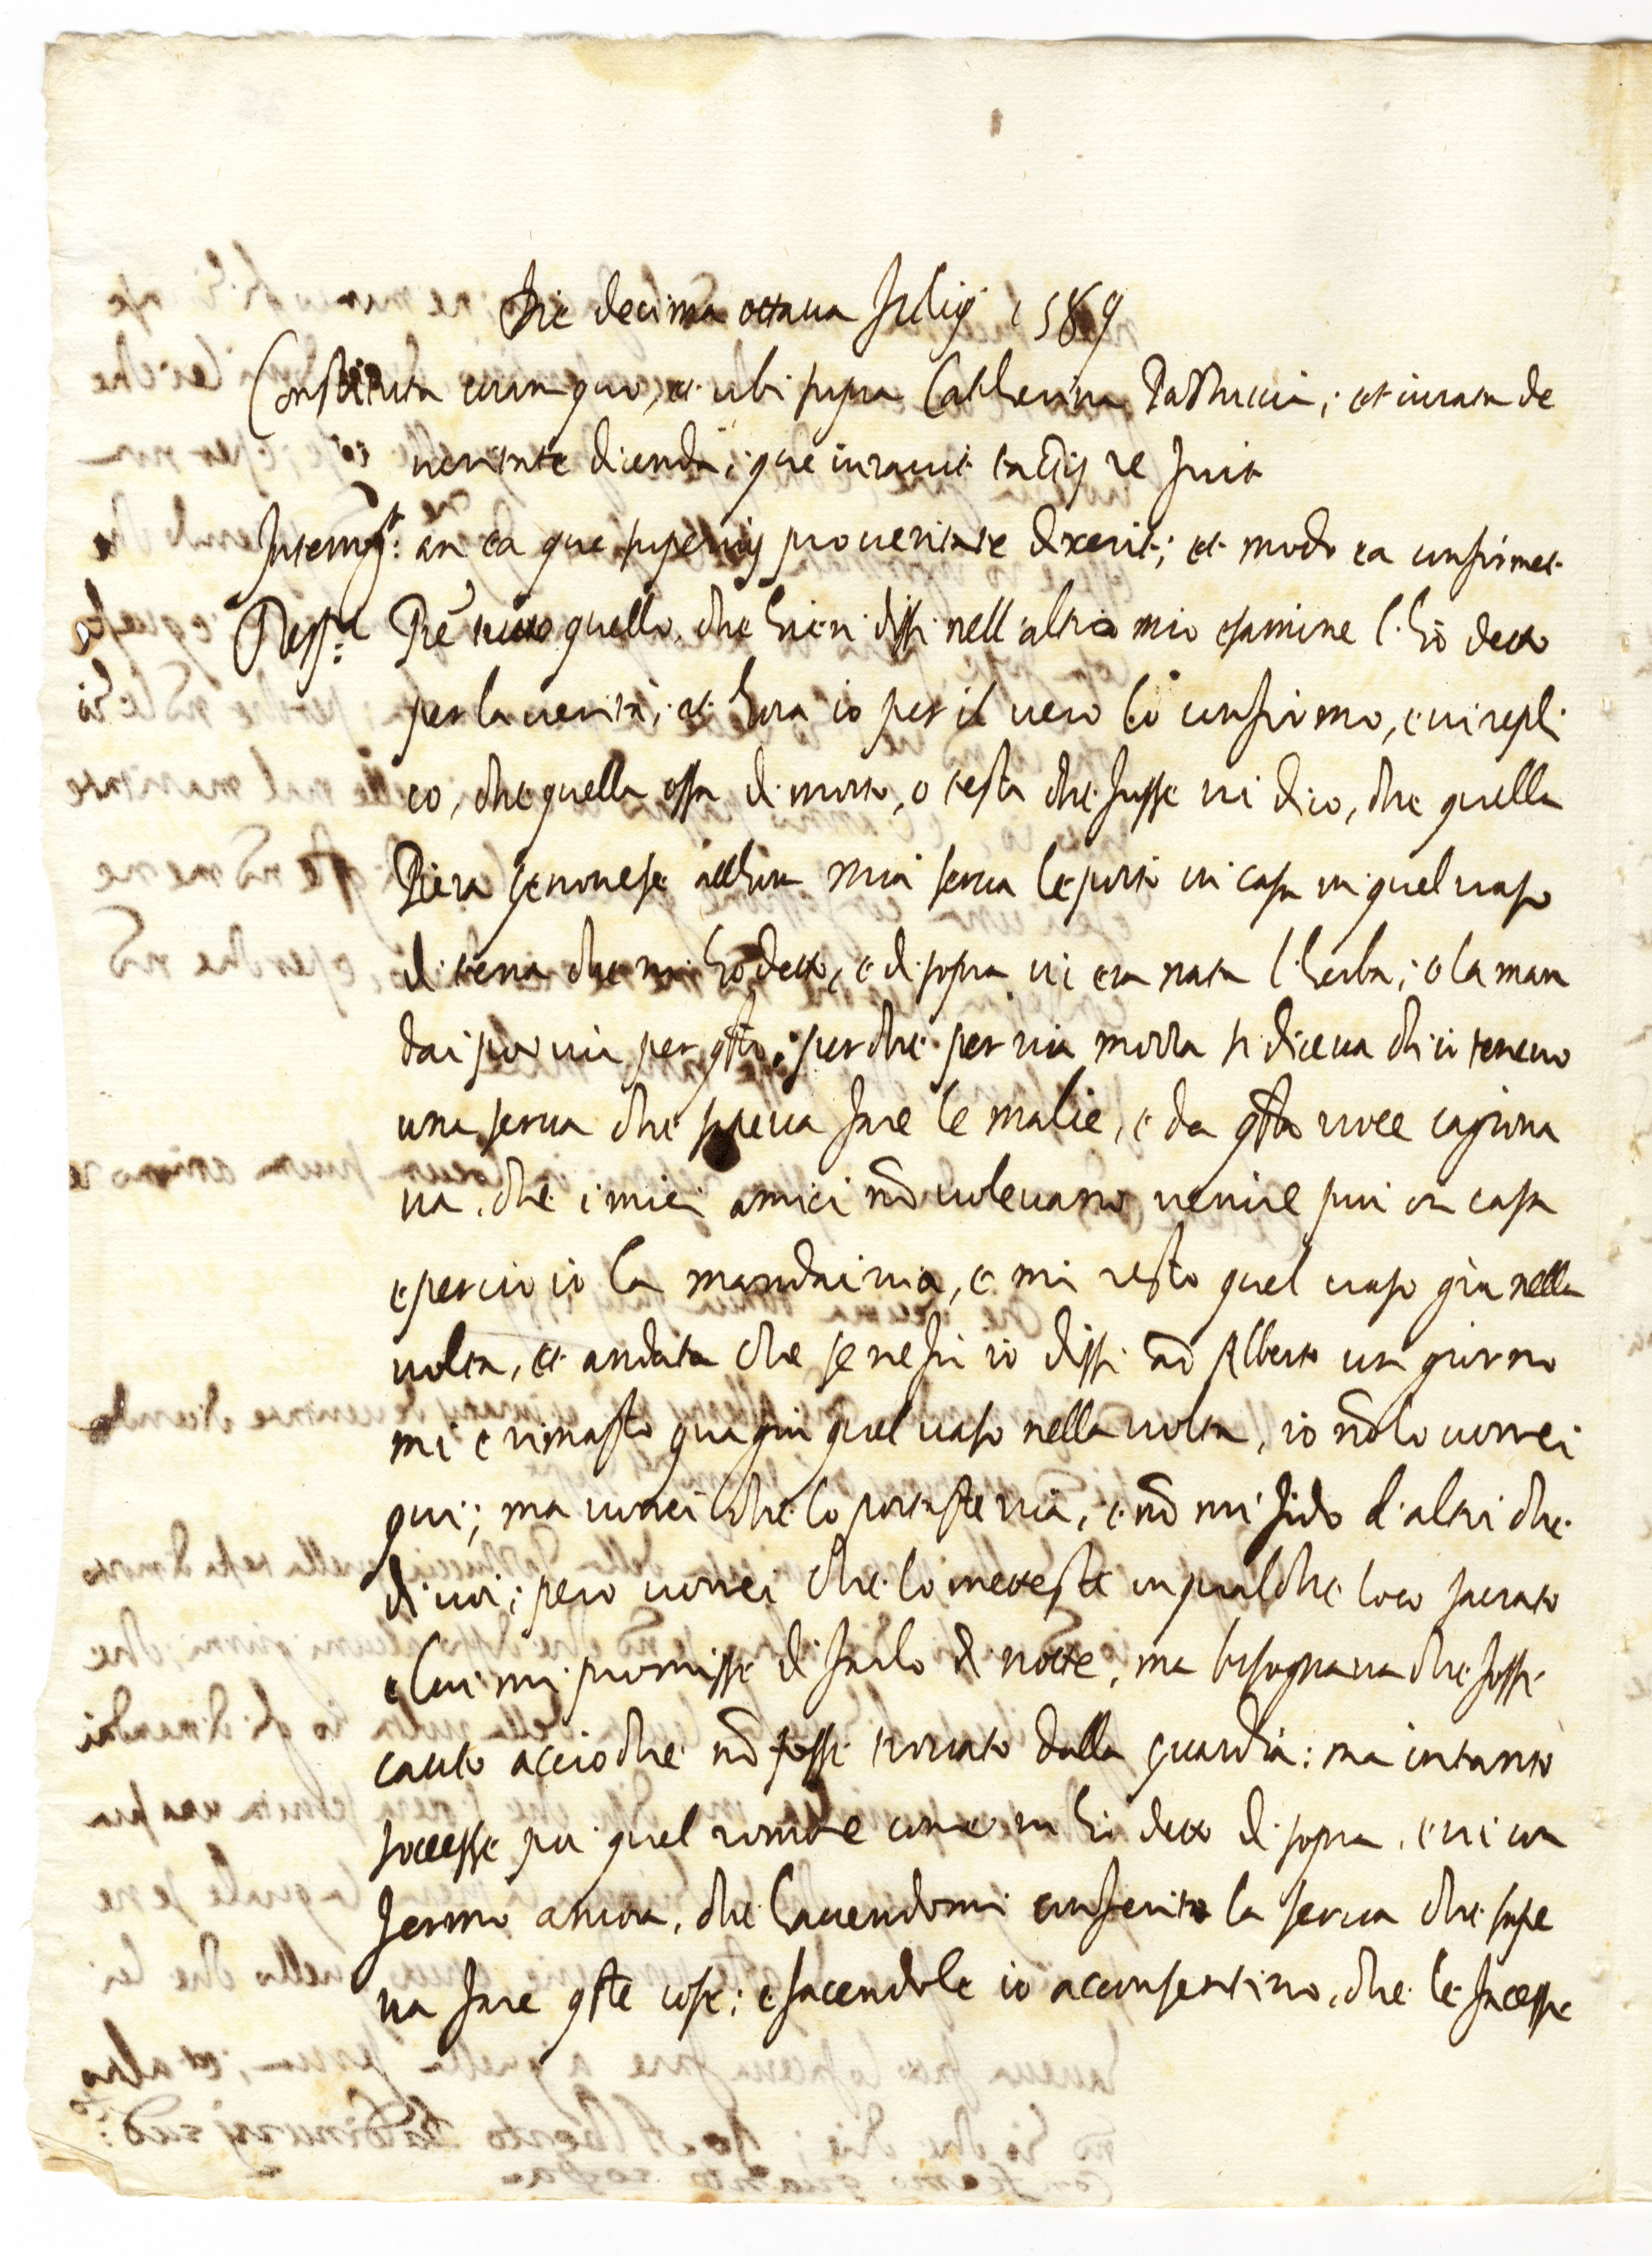 Die decima ottaua Julij 1589
Constituta coram quo, et ubi supra Catherina; et iurata de
veritate dicenda; que iurauit tactis re fuit
Interrog.t an ea que superius pro veritate dixerit; et modo ea confirmet
Resp.t Rè tutto quello, che hieri dissi nell'altro mio esamine l'hò detto
per la verità; et hora io per il vero lo confirmo, e vi repli
co, che quella ossa di morto, o testa che fusse vi dico, che quella
Piera genouese allhora mia serua le portò in casa in quel vaso
di terra che vi hò detto, e di sopra vi era nata l'herba; e la man
dai poi via per qsto; perche per via mozza si diceua ch'io teneuo
una serua che sapeua fare le malie, e da qsta voce cagiona
ua, che i miei amici nō voleuano venire piu in casa
e perciò io la mandai via, e mi restò quel vaso giù nella
volta, et andata che se ne fu io dissi ad Alberto un giorno
mi è rimasto qua giu quel vaso nella volta, io nō lo vorrei
qui; ma vorrei che lo portaste via, e nō mi fido d'altri che
di voi; pero vorrei che lo metteste in qualche loco sacrato
e lui mi promisse di farlo di notte, ma bisognaua che fosse
cauto accioche nō fosse trouato dalla guardia: ma intanto
socesse poi quel romore come vi hò detto di sopra, e vi con
fermo ancora, che hauendomi conferito la serua che sape
ua fare qste cose; e facendole io acconsentiuo, che le facesse